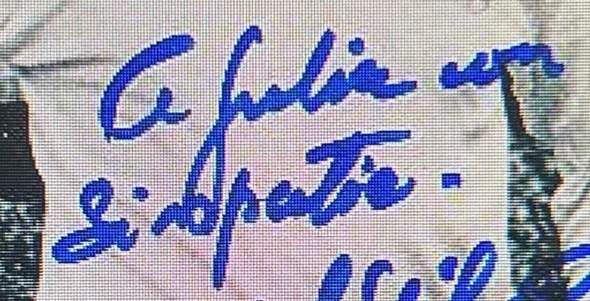 A Julia con
Simpatia.